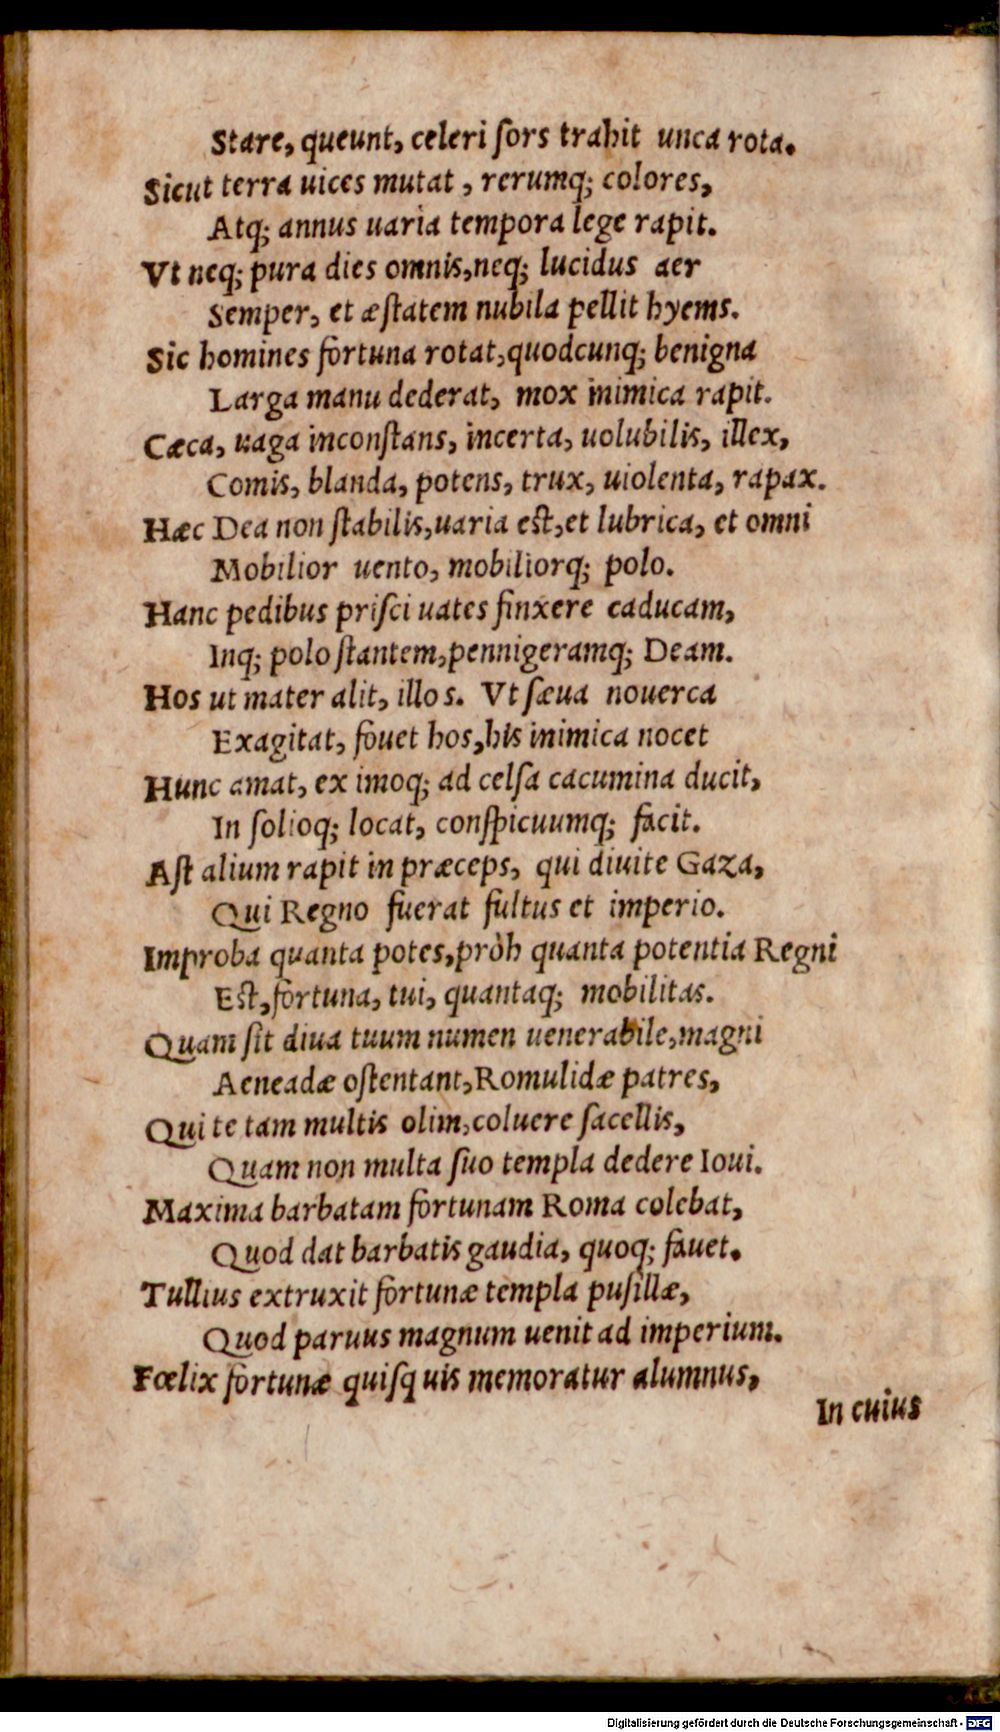 Stare, queunt, celeri ſors trahit unca rota.
Sicut terra uices mutat, rerumq; colores,
Atq; annus uaria tempora lege rapit.
Vt neq; pura dies omnis, neq; lucidus aer
Semper, et æſtatem nubila pellit hyems.
Sic homines fortuna rotat, quodcunq; benigna
Larga manu dederat, mox inimica rapit.
Cæca, uaga inconſtans, incerta, uolubilis, illex,
Comis, blanda, potens, trux, uiolenta, rapax.
Hæc Dea non ſtabilis, uaria eſt, et lubrica, et omni
Mobilior uento, mobiliorq; polo.
Hanc pedibus priſci uates finxere caducam,
Inq; polo ſtantem, pennigeramq; Deam.
Hos ut mater alit, illos. Vt ſæua nouerca
Exagitat, fouet hos, his inimica nocet
Hunc amat, ex imoq; ad celſa cacumina ducit,
In ſolioq; locat, conſpicuumq; facit.
Aſt alium rapit in præceps, qui diuite Gaza,
Qui Regno fuerat fultus et imperio.
Improba quanta potes, pròh quanta potentia Regni
Eſt, fortuna, tui, quantaq; mobilitas.
Quam ſit diua tuum numen uenerabile, magni
Aeneadæ oſtentant, Romulidæ patres,
Qui te tam multis olim, coluere ſacellis,
Quam non multa ſuo templa dedere Ioui.
Maxima barbatam fortunam Roma colebat,
Quod dat barbatis gaudia, quoq; fauet.
Tullius extruxit fortunæ templa puſillæ,
Quod paruus magnum uenit ad imperium.
Fœlix fortunæ quiſquis memoratur alumnus,
In cuius
Digitalisierung gefördert durch die Deutsche Forschungsgemeinschaft - DFG